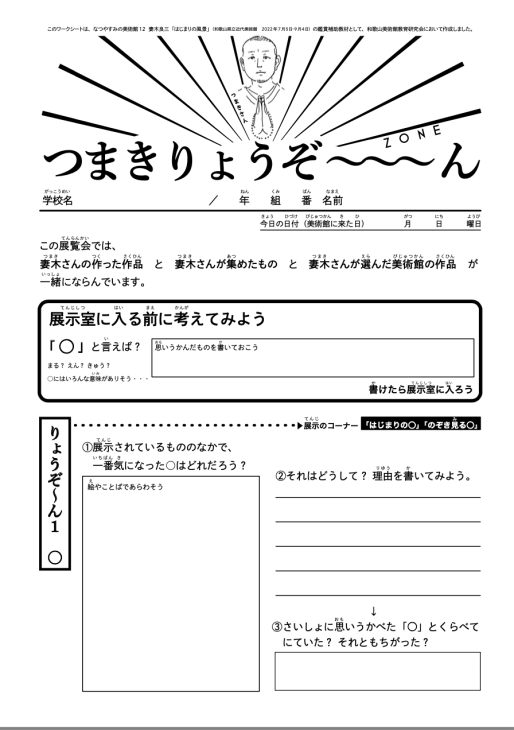 このワークシートは、なつやすみの美術館12 妻木良三「はじまりの風景」（和歌山県立近代美術館 2022年7月5日-9月4日）の鑑賞補助教材として、和歌山美術館教育研究会において作成しました。
つまきりょうぞ〜〜〜ん
ZONE
学校名 ／ 年 組 番 名前
今日の日付（美術館に来た日） 月 日 曜日
この展覧会では、
妻木さんの作った作品 と 妻木さんが集めたもの と 妻木さんが選んだ美術館の作品 が
一緒にならんでいます。
展示室に入る前に考えてみよう
「〇」と言えば？
思いうかんだものを書いておこう
まる？えん？きゅう？
〇にはいろんな意味がありそう・・・
書けたら展示室に入ろう
りょうぞ〜ん1 〇
展示のコーナー 「はじまりの〇」「のぞき見る〇」
①展示されているもののなかで、
一番気になった〇はどれだろう？
絵やことばであらわそう
②それはどうして？ 理由を書いてみよう。
↓
③さいしょに思いうかべた「〇」とくらべて
にていた？ それともちがった？